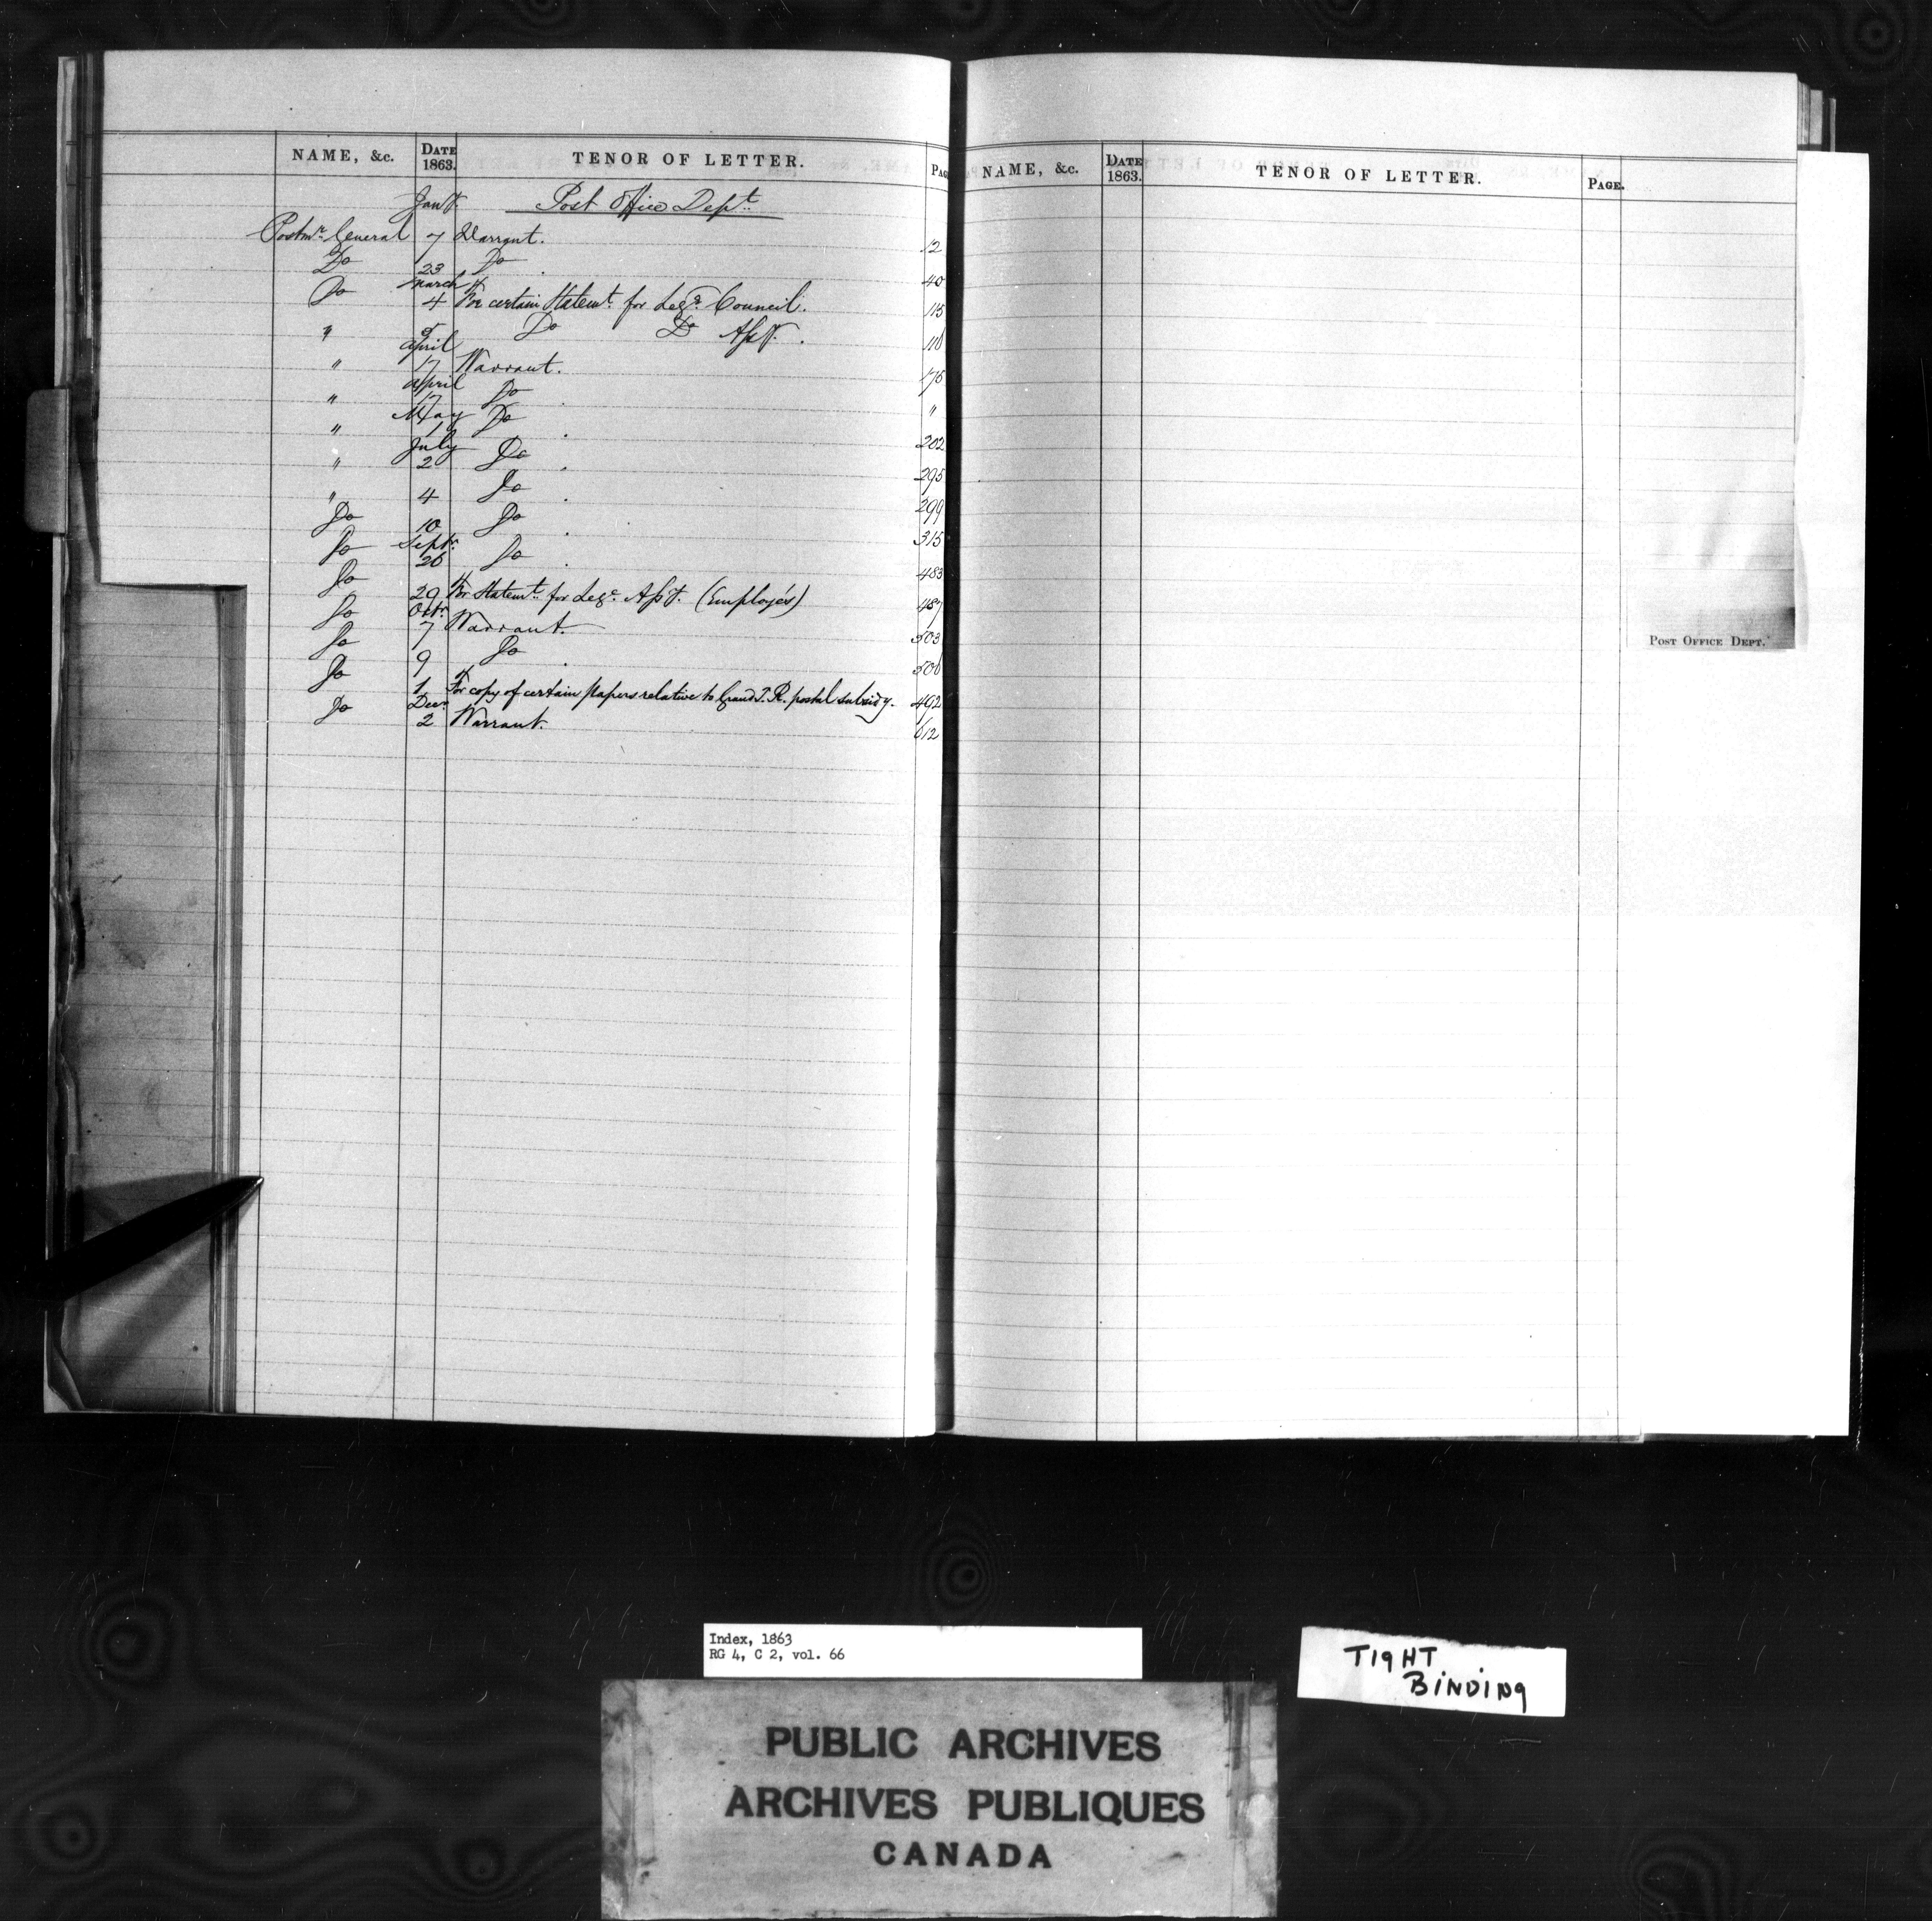 NAME, &c. DATE 1863. TENOR OF LETTER. PAG
Jany. Post Office Dept.
Postmr. General 7 Warrant. 12
Do 23 Do . 40
Do March 4 For certain Statemt. for Lege. Council. 115
" 5 Do Do Assy. . 118
" April 17 Warrant. 175
" April 17 Do . "
" May 1 Do . 202
" July 2 Do . 295
" 4 Do . 299
Do 10 Do . 315
Do Septr. 26 Do . 483
Do 29 For Statemt. for Lege. Assy. (Employés) 487
Do Octr. 7 Warrant. 503
Do 9 Do . 508
Do 1 For copy of certain papers relative to Grand T. R. postal subsidy. 492
Do Decr. 2 Warrant. 612
NAME, &c. DATE 1863. TENOR OF LETTER. PAGE.
POST OFFICE DEPT.
Index, 1863
RG 4, C 2, vol. 66
TIGHT
BINDING
PUBLIC ARCHIVES
ARCHIVES PUBLIQUES
CANADA